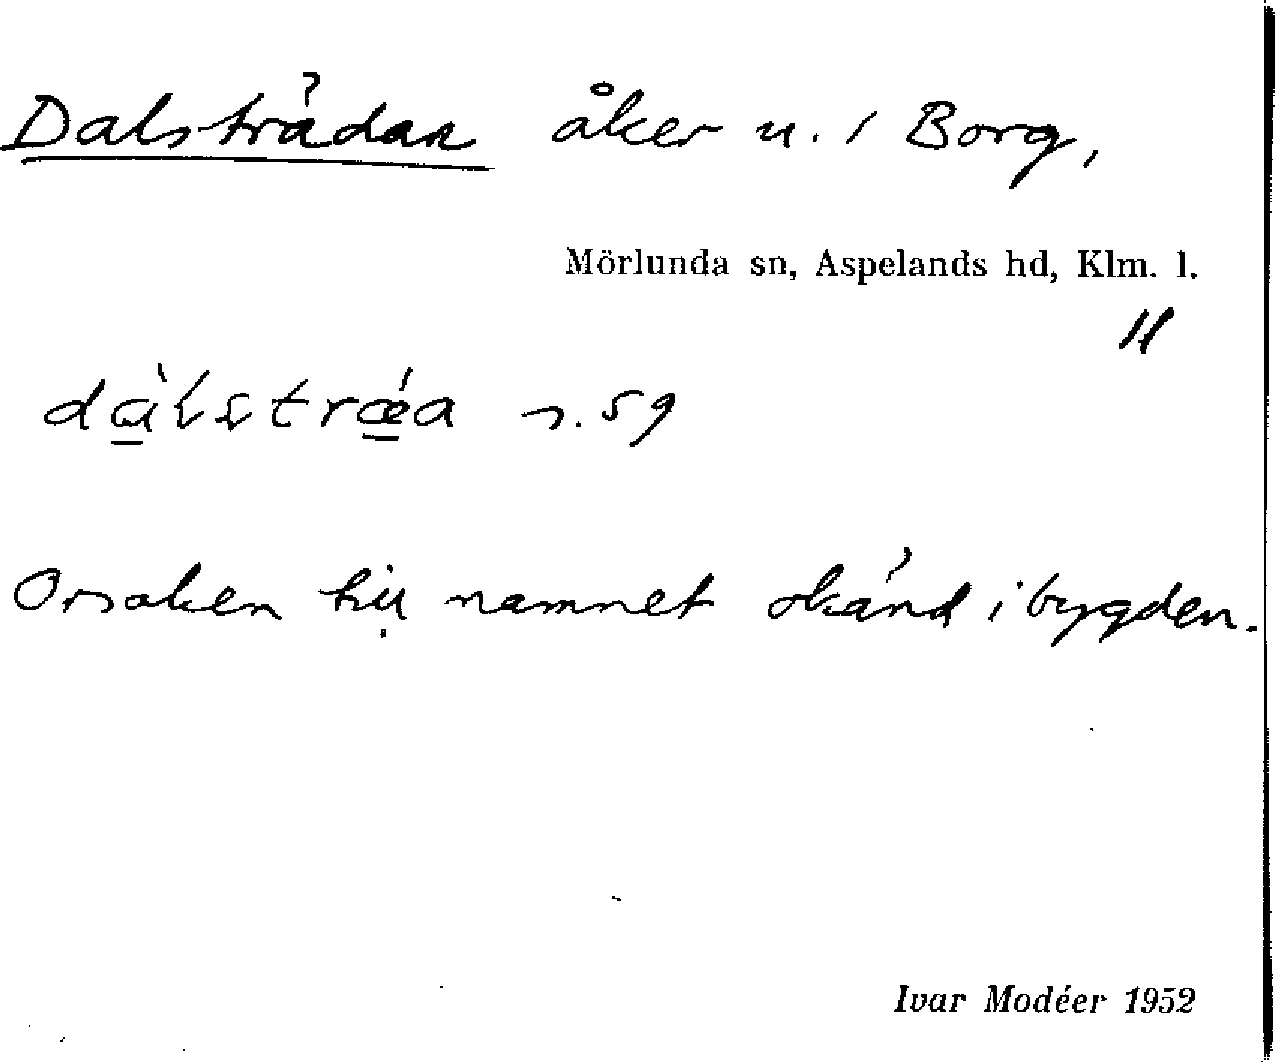 Dalsträdan åker u. 1 Borg,
Mörlunda sn, Aspelands hd, Klm. l.
dàlstrǽa n. 59
Orsaken till namnet okänd i bygden.
Ivar Modéer 1952